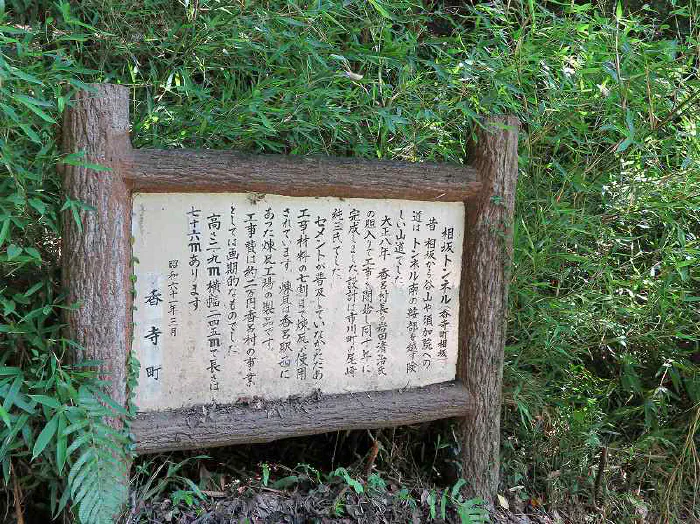 相坂トンネル 香寺町相坂
昔 相坂から谷山や須加院への
道は トンネル南の峠部を越す険
しい山道でした
大正八年 香呂村長の岩田清治氏
の肝入りで工事を開始し同十年に
完成しました 設計は市川町の尾崎
氏でした
セメントが普及していなかったため
工事材料の七割まで煉瓦が使用
されています 煉瓦は香呂駅西に
あった煉瓦工場の製品です
工事費は約二万円香呂村の事業
としては画期的なものでした
高さ三.九m横幅二.四五mで長さは
七十六mあります
昭和六十一年三月
香寺町